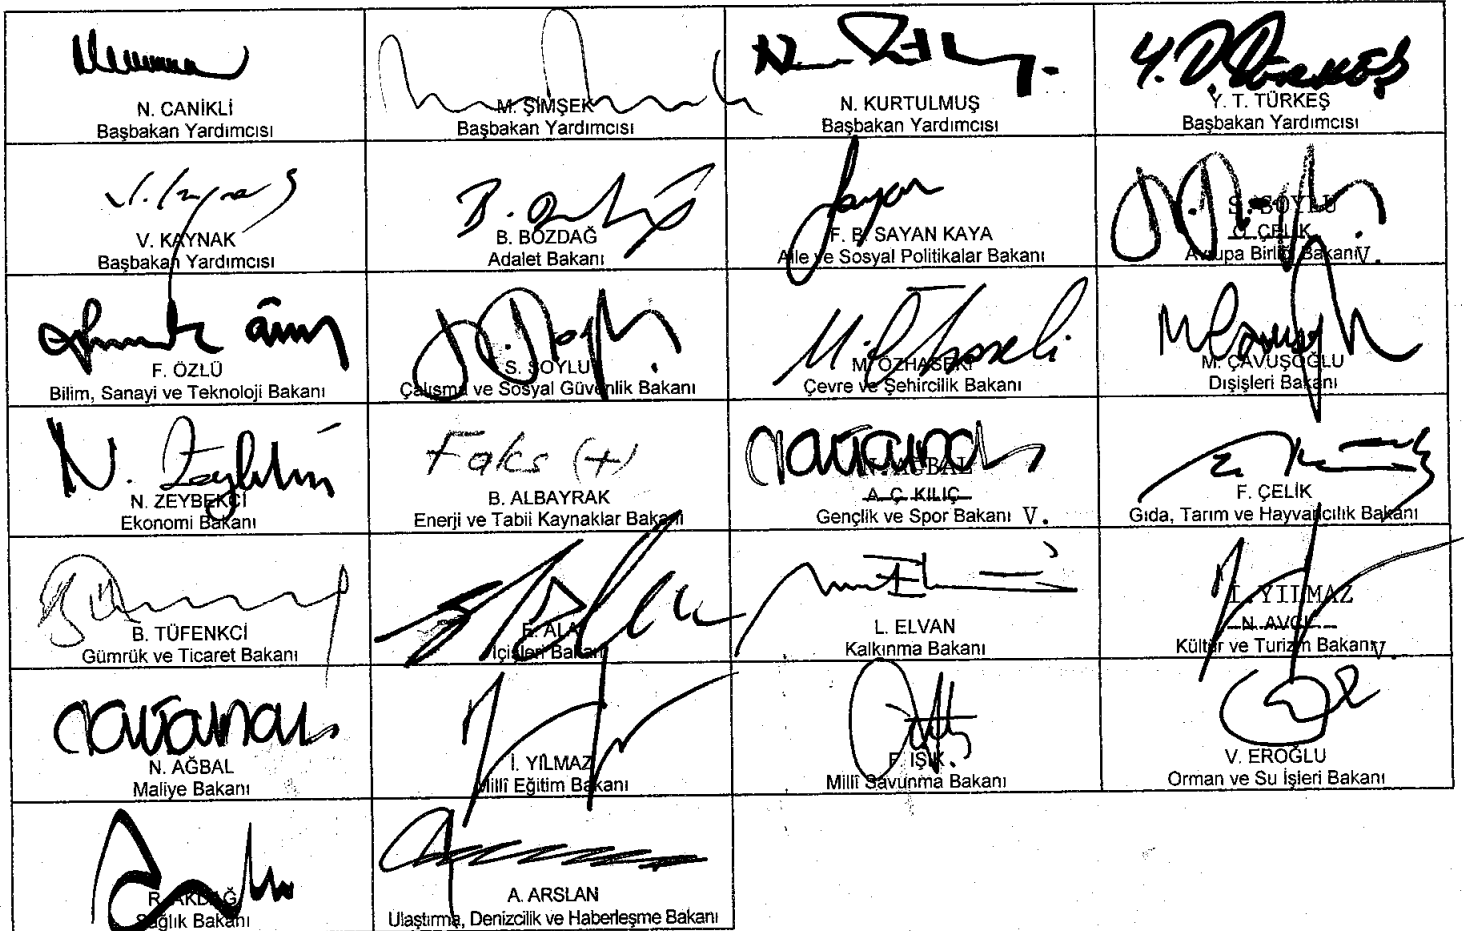 N. CANİKLİ
Başbakan Yardımcısı
M. ŞİMŞEK
Başbakan Yardımcısı
N. KURTULMUŞ
Başbakan Yardımcısı
Y. T. TÜRKEŞ
Y. T. TÜRKEŞ
Başbakan Yardımcısı
V. KAYNAK
Başbakan Yardımcısı
B. BOZDAĞ
Adalet Bakanı
F. B. SAYAN KAYA
Aile ve Sosyal Politikalar Bakanı
S. SOYLU
Ö. ÇELİK
Avrupa Birliği Bakanı V.
F. ÖZLÜ
Bilim, Sanayi ve Teknoloji Bakanı
S. SOYLU
Çalışma ve Sosyal Güvenlik Bakanı
M. ÖZHASEKİ
Çevre ve Şehircilik Bakanı
M. ÇAVUŞOĞLU
Dışişleri Bakanı
N. ZEYBEKCİ
Ekonomi Bakanı
Faks (+)
B. ALBAYRAK
Enerji ve Tabii Kaynaklar Bakanı
N. AĞBAL
A. Ç. KILIÇ
Gençlik ve Spor Bakanı V.
F. ÇELİK
Gıda, Tarım ve Hayvancılık Bakanı
B. TÜFENKCİ
Gümrük ve Ticaret Bakanı
E. ALA
İçişleri Bakanı
L. ELVAN
Kalkınma Bakanı
İ. YILMAZ
N. AVCI
Kültür ve Turizm Bakanı V.
N. AĞBAL
Maliye Bakanı
İ. YILMAZ
Millî Eğitim Bakanı
F. IŞIK
Millî Savunma Bakanı
V. EROĞLU
Orman ve Su İşleri Bakanı
R. AKDAĞ
Sağlık Bakanı
A. ARSLAN
Ulaştırma, Denizcilik ve Haberleşme Bakanı